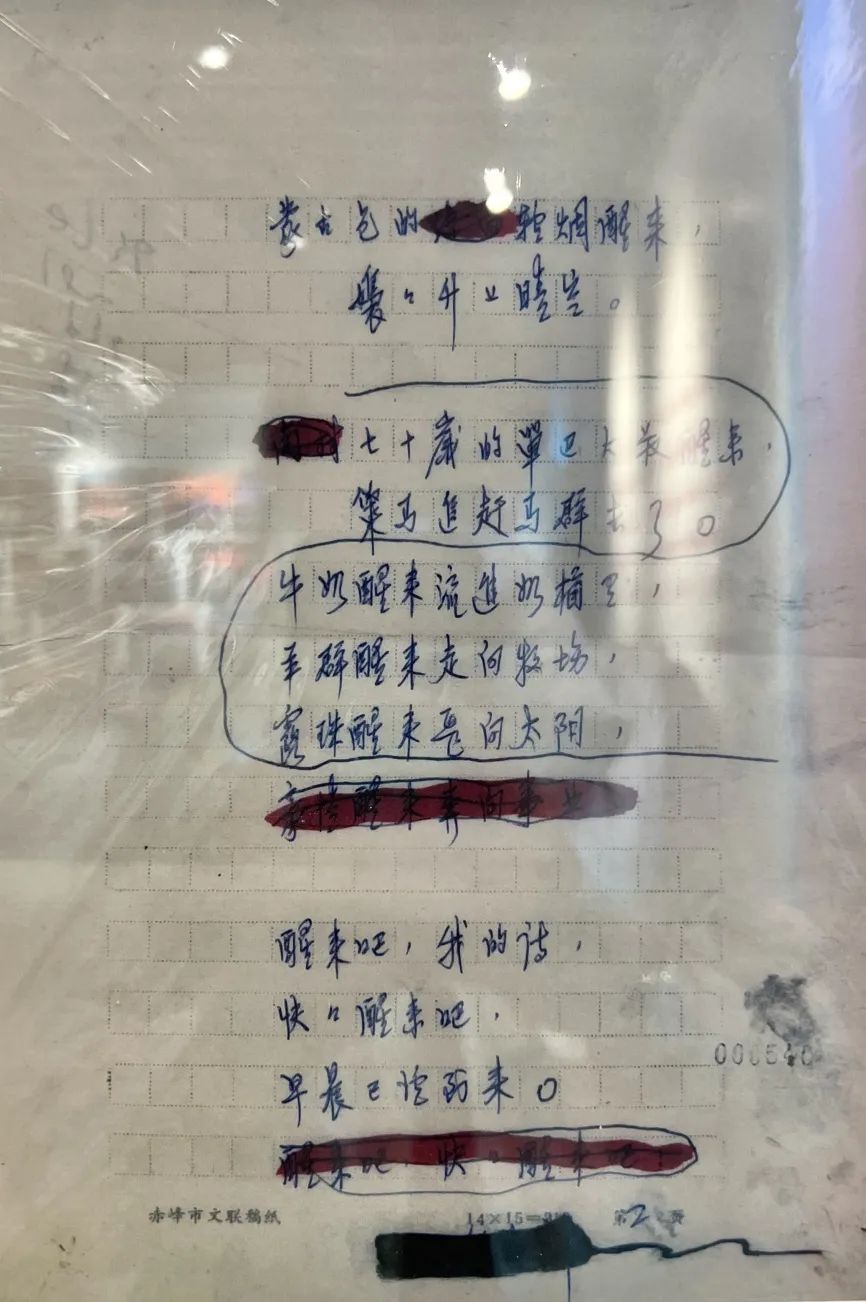 蒙古包的轻烟醒来，
袅々升上晴岚。
七十歲的單巴大叔醒来，
策马追赶马群去了。
牛奶醒来流進奶桶里，
羊群醒来走向牧场，
露珠醒来亮向太阳，
醒来奔向事业
醒来吧，我的诗，
快々醒来吧，
早晨已经到来。
醒来吧，快々醒来吧！
000540
赤峰市文联稿纸
14×15=210
第2页